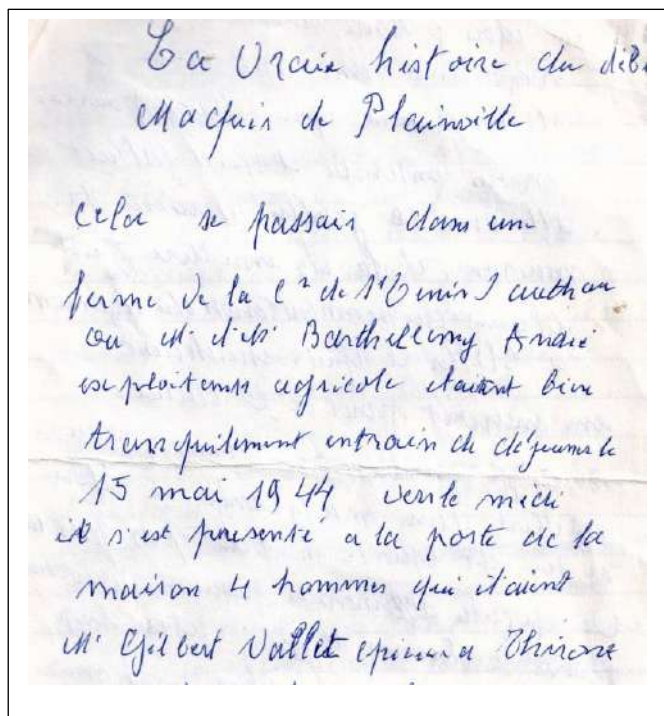 La Vraie histoire du débu
Maquis de Plainville
Cela se passais dans une
ferme de la Cne de St Denis d authou
ou Mr et Me Barthellemy André
exploitants agricole étaient bien
tranquilement entrain de déjeuner le
15 mai 1944 vers le midi
il s'est presenté a la porte de la
maison 4 hommes qui étaient
Mr Gilbert Vallet a Thiron